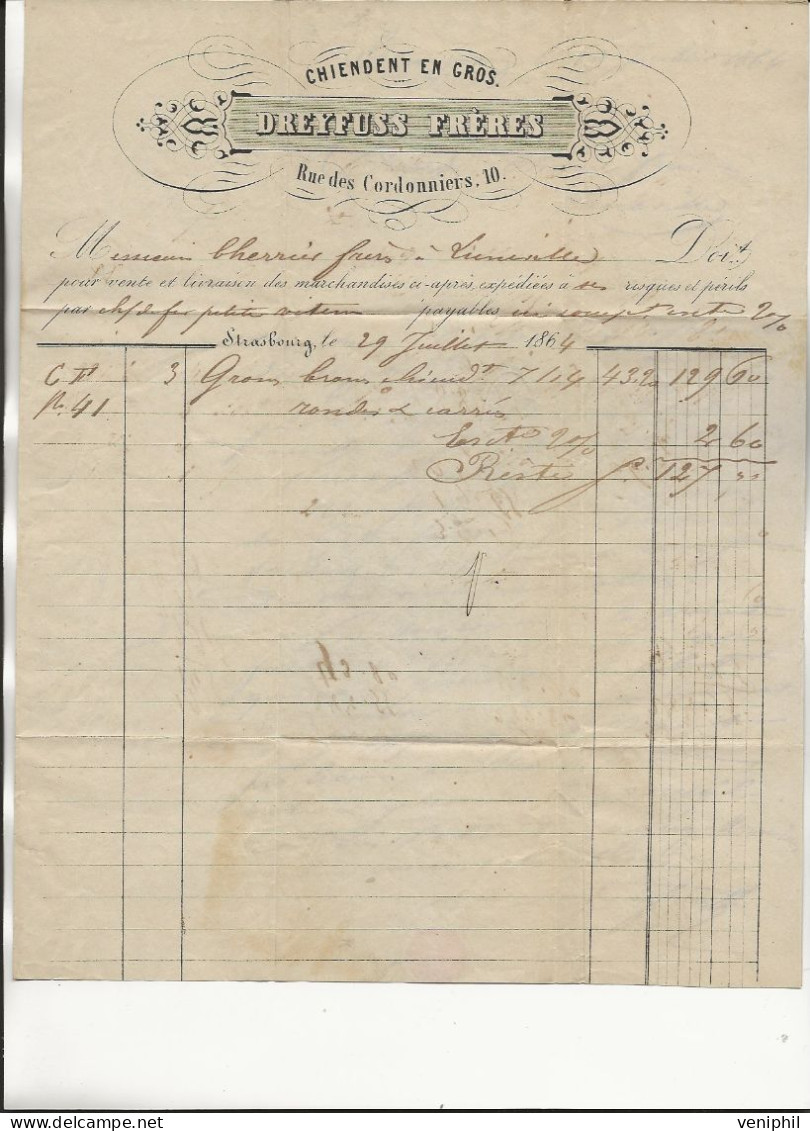 CHIENDENT EN GROS.
DREYFUSS FRÈRES
Rue des Cordonniers, 10.
Messieurs Cherrier frères à Lunéville Doit
pour vente et livraison des marchandises ci-après, expédiées à ses risques et périls
par petite vitesse payables escte 2%
Strasbourg, le 29 Juillet 1864
C F 3 Gross 7/14 43.20 129 60
No 41 rondes & carrés
Escte 2% 2 60
Reste f. 127
veniphil